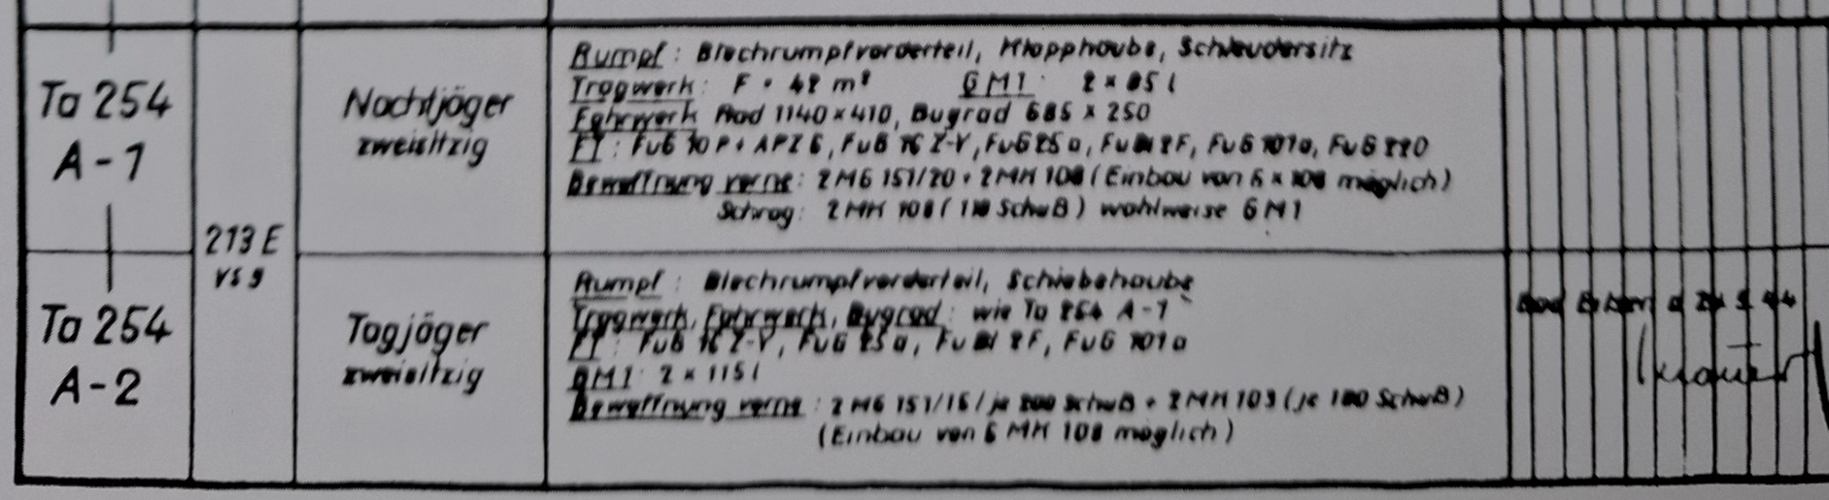 Ta 254
A-1
213 E
VS 9
Nachtjäger
zweisitzig
Rumpf: Blechrumpfvorderteil, Klapphaube, Schleudersitz
Tragwerk: F = 42 m² GM1: 2 × 85 l
Fahrwerk Rad 1140 × 410, Bugrad 685 × 250
FT: FuG 10 P + APZ 6, FuG 16 Z-Y, FuG 25 a, FuBl 2F, FuG 101a, FuG 220
Bewaffnung vorne: 2 MG 151/20 + 2 MK 108 (Einbau von 6 × 108 möglich)
Schräg: 2 MK 108 ( Schuß) wahlweise GM1
Ta 254
A-2
Tagjäger
zweisitzig
Rumpf: Blechrumpfvorderteil, Schiebehaube
Tragwerk, Fahrwerk, Bugrad: wie Ta 254 A-1
FT: FuG 16 Z-Y, FuG 25a, FuBl 2F, FuG 101a
GM1: 2 × 115 l
Bewaffnung vorne: 2 MG 151/15/je 200 Schuß + 2 MK 103 (je Schuß)
(Einbau von 6 MK 108 möglich)